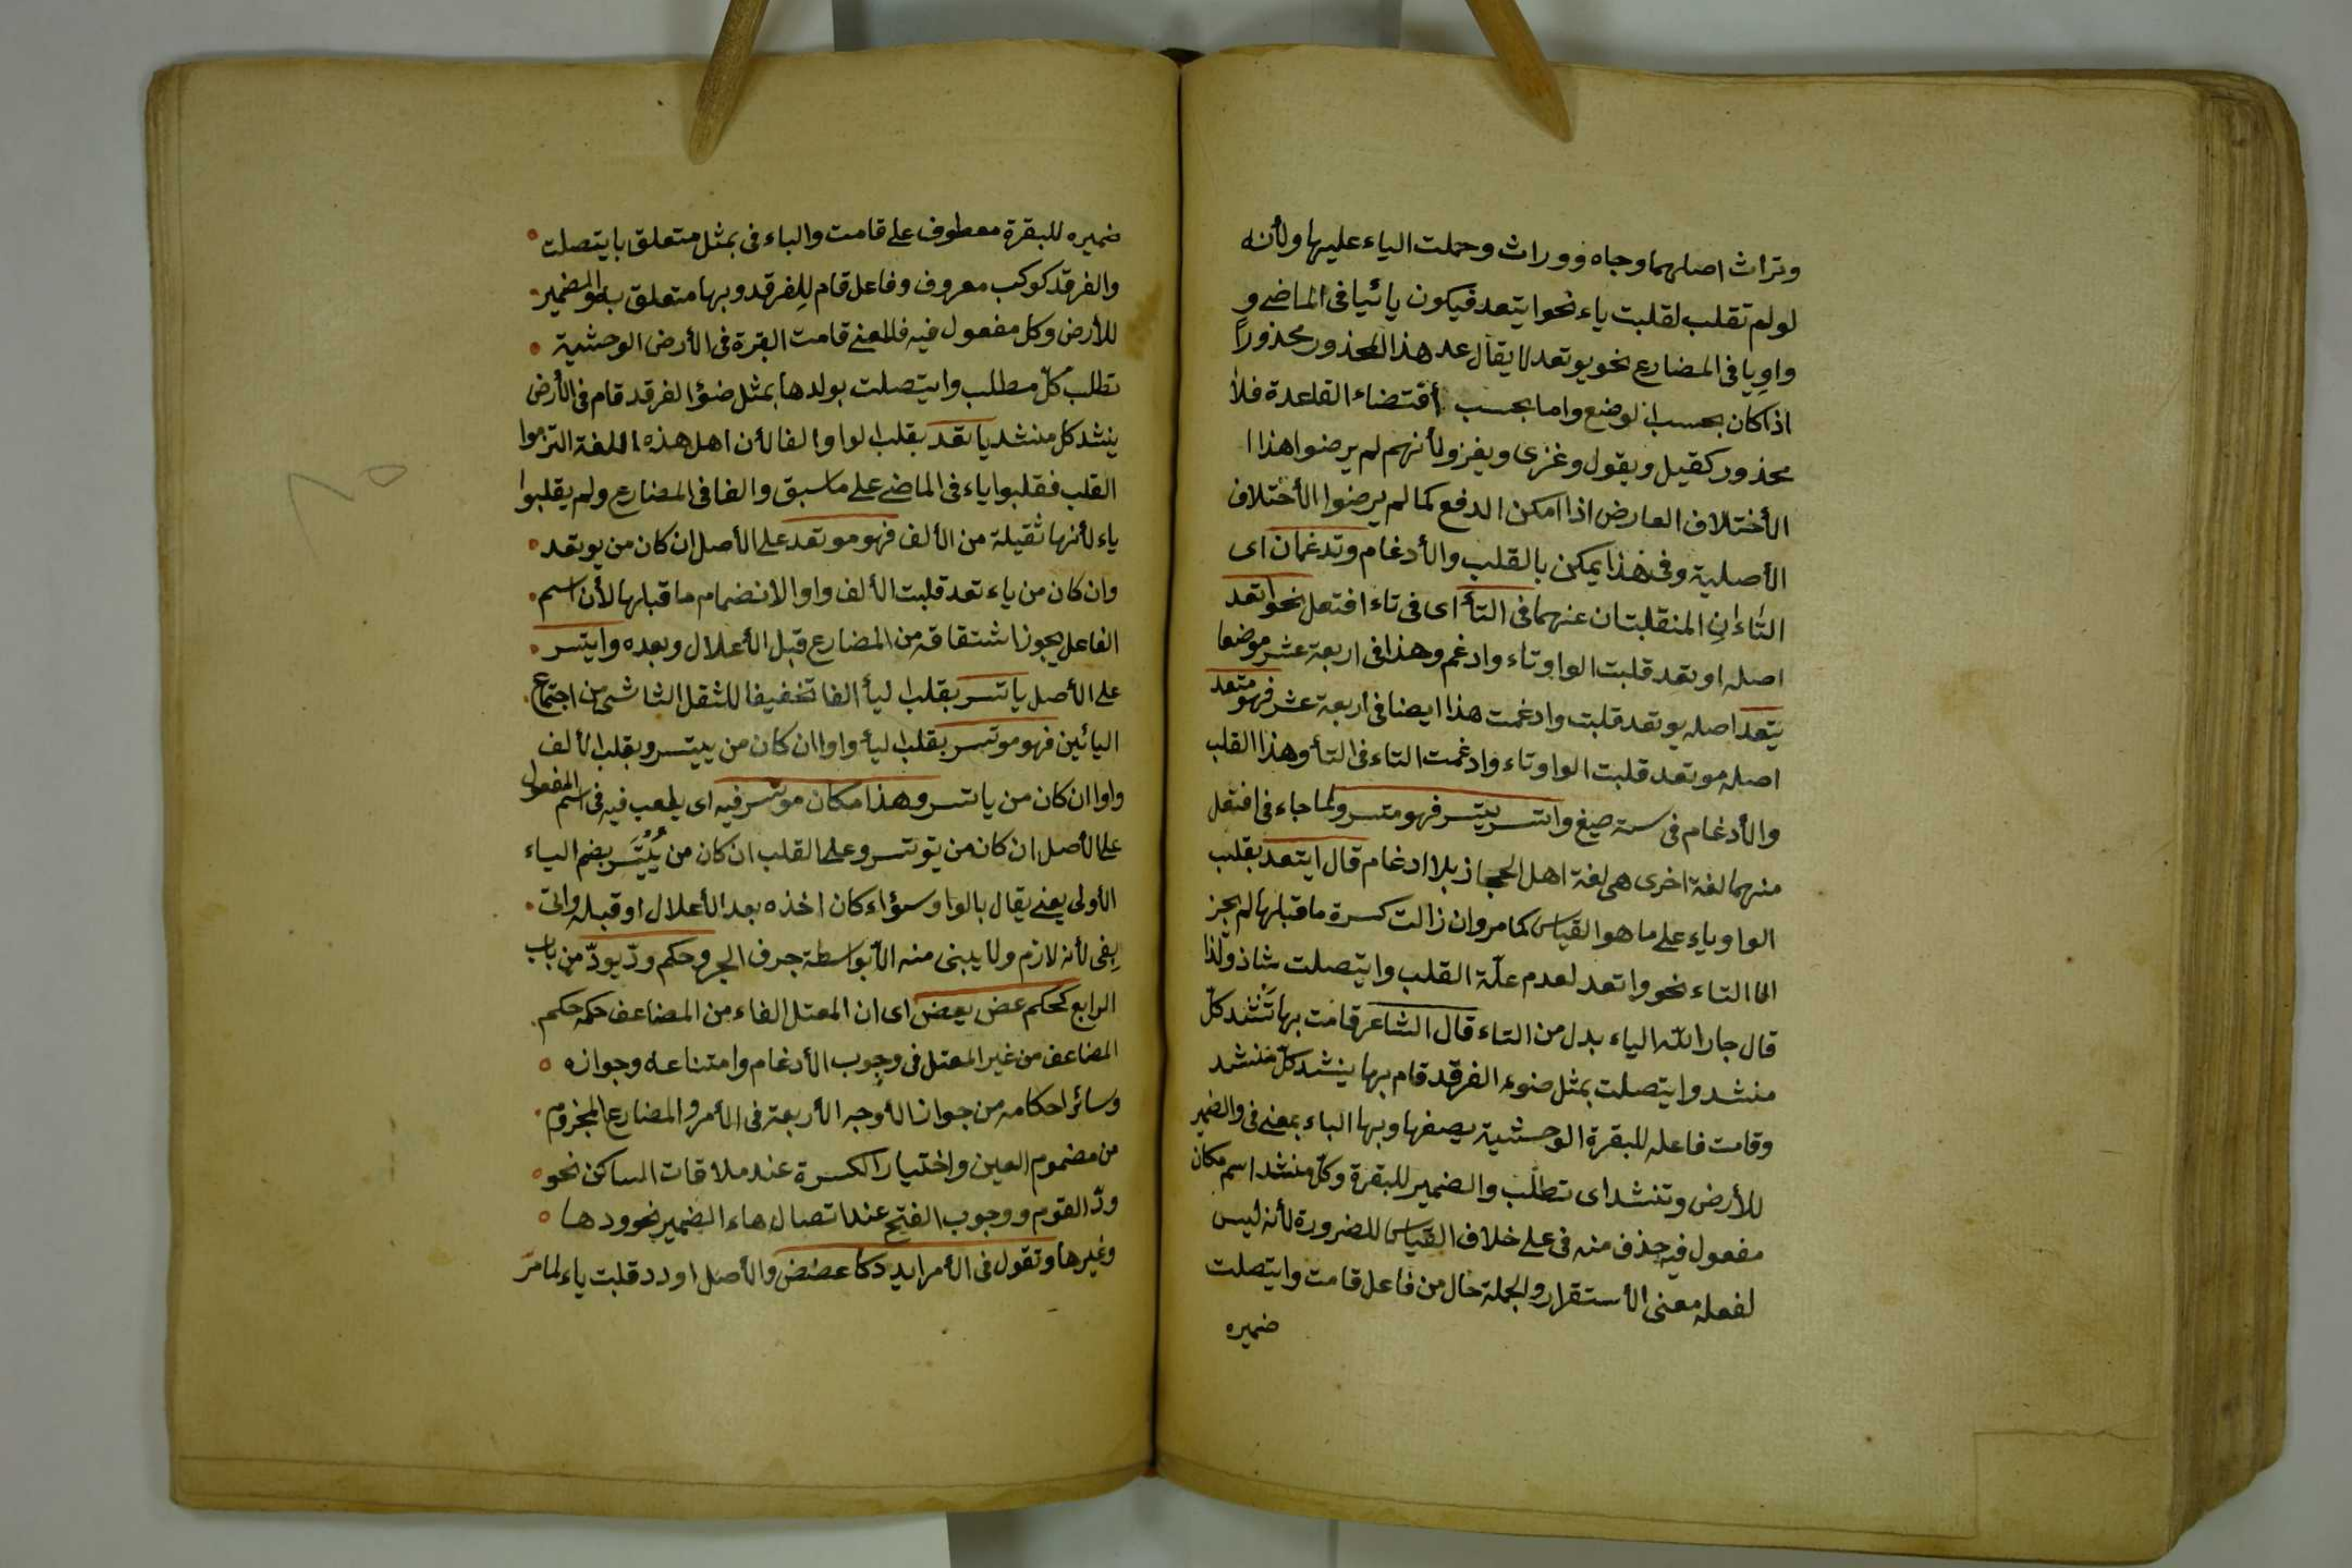 وتراث اصلهما وجاه ووراث وحملت الياء عليها ولأنه
لو لم تقلب لقلبت ياء نحو ايتعد فيكون يائيا فى الماضى و
واويا فى المضارع نحو يوتعد لا يقال عد هذا المحذور محذورا
اذا كان بحسب الوضع واما بحسب أقتضاء القاعدة فلا
محذور كقيل ويقول وغزى ويغزو لأنهم لم يرضوا هذا ا
الأختلاف العارض اذا امكن الدفع كما لم يرضوا الأختلاف
الأصلية وفى هذا يمكن بالقلب والأدغام وتدغمان اى
التاءان المنقلبتان عنهما فى التأ اى فى تاء افتعل نحو اتعد
اصله اوتعد قلبت الواو تاء وادغم وهذا فى اربعة عشر موضعا
يتعد اصله يوتعد قلبت وادغمت هذا ايضا فى اربعة عشر فهو متعد
اصله موتعد قلبت الواو تاء وادغمت التاء فى التأ وهذا القلب
والأدغام فى ستة صيغ واتسر يتسر فهو متسر ولما جاء فى افتعل
منهما لغة اخرى هى لغة اهل الحجاز بلا ادغام قال ايتعد بقلب
الواو ياء على ما هو القياس كما مر وان زالت كسرة ما قبلها لم يجز
الا التاء نحو واتعد لعدم علّة القلب وايتصلت شاذ ولذا
قال جار اللّه الياء بدل من التاء قال الشاعر قامت بها تَنْشد كلّ
منشد وايتصلت بمثل ضوء الفرقد قام بها ينشد كلّ منشد
وقامت فاعله للبقرة الوحشية يصفها وبها الباء بمعنى فى والضمير
للأرض وتنشد اى تطلب والضمير للبقرة وكلّ منشد اسم مكان
مفعول فيه حذف منه فى على خلاف القياس للضرورة لأنه ليس
لفعله معنى الأستقرار والجملة حال من فاعل قامت وايتصلت
ضميره
ضميره للبقرة معطوف على قامت والباء فى بمثل متعلق بايتصلت
والفرقد كوكب معروف وفاعل قام لِلفرقد وبها متعلق والضمير
للأرض وكل مفعول فيه فالمعنى قامت البقرة فى الأرض الوحشية
تطلب كلّ مطلب وايتصلت بولدها بمثل ضوء الفرقد قام فى الأرض
ينشد كل منشد ياتعد بقلب الواو الفا لأن اهل هذه اللغة التزموا
القلب فقلبوا ياء فى الماضى على ما سبق والفا فى المضارع ولم يقلبوا
ياء لأنها ثقيلة من الألف فهو موتعد على الأصل ان كان من يوتعد
وان كان من ياء تعد قلبت الألف واوا لانضمام ما قبلها لأن اسم
الفاعل يجوز اشتقاقه من المضارع قبل الأعلال وبعده وايتسر
على الأصل ياتسر بقلب اليأ الفا تخفيفا للثقل الناشى من اجتماع
اليائين فهو موتسر بقلب اليأ واوا ان كان من ييتسر وبقلب الألف
واوا ان كان من ياتسر وهذا مكان موتسر فيه اى يلعب فيه فى اسم المفعول
على الأصل ان كان من يوتسر وعلى القلب ان كان من يُيْتَسر بضم الياء
الأولى يعنى يقال بالواو سواء كان اخذه بعد الأعلال او قبله واتى
بفى لأنه لازم ولا يبنى منه الا بواسطة حرف الجر وحكم ودّ يودّ من باب
الرابع كحكم عض يعض اى ان المعتل الفاء من المضاعف حكمه حكم
المضاعف من غير المعتل فى وجوب الأدغام وامتناعه وجوازه
وسائر احكامه من جواز الأوجه الأربعة فى الأمر والمضارع المجزوم
من مضموم العين واختيار الكسرة عند ملاقات الساكن نحو
ودّ القوم ووجوب الفتح عند اتصال هاء الضمير نحو ودها
وغيرها وتقول فى الأمر ايدد كاعضض والأصل اودد قلبت ياء لما مرّ